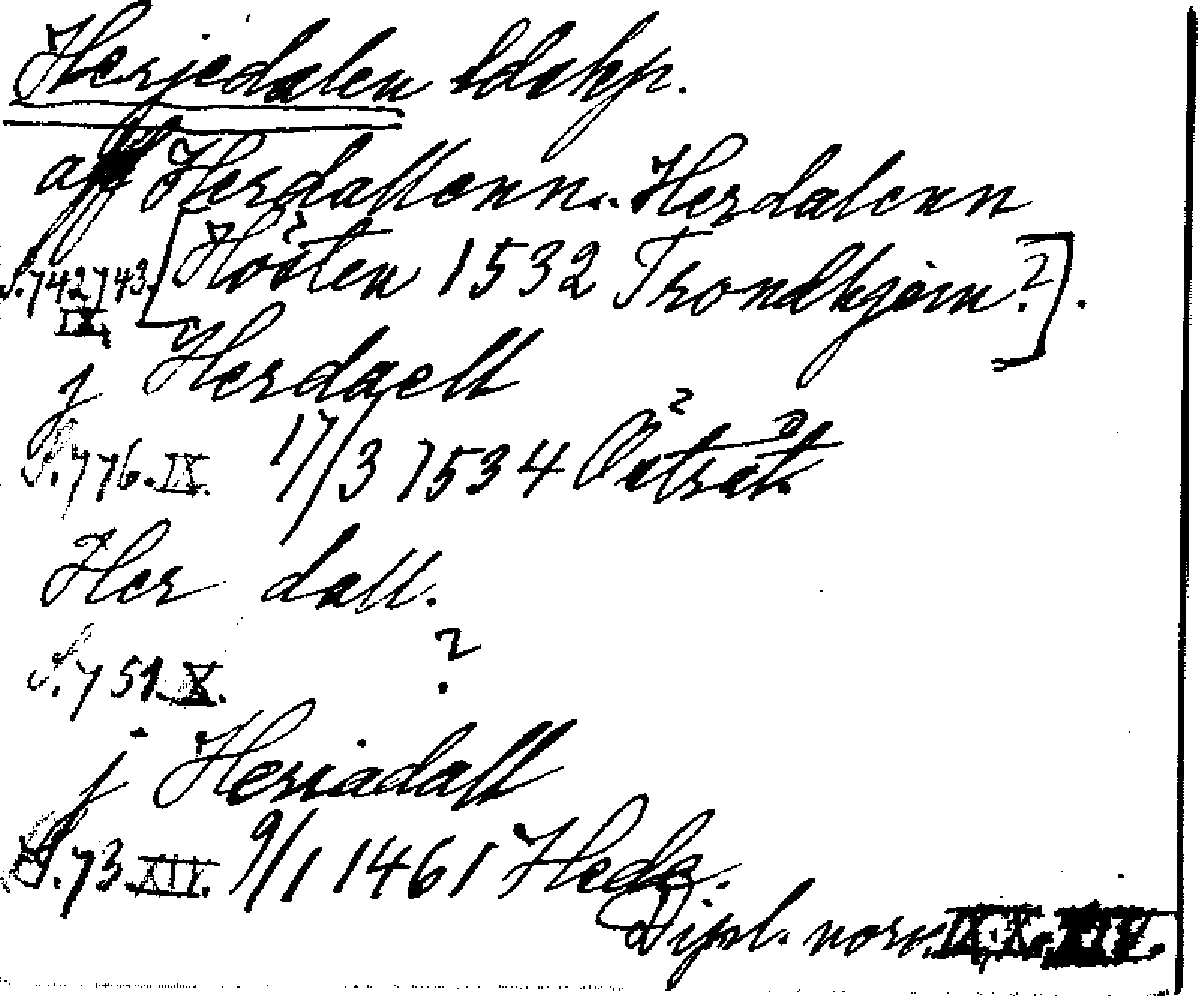 Herjedalen ldskp.
aff Herdallenn. Herdalenn
S. 742, 743. IX. [Hösten 1532 Trondhjem?].
j Herdaell
S. 776. IX. 17/3 1534 Östråt
Her dall.
S. 751. X. ?
j Heriadall
S. 73 XIV. 9/1 1461 Hede.
Dipl. norv. IX, X, XIV.